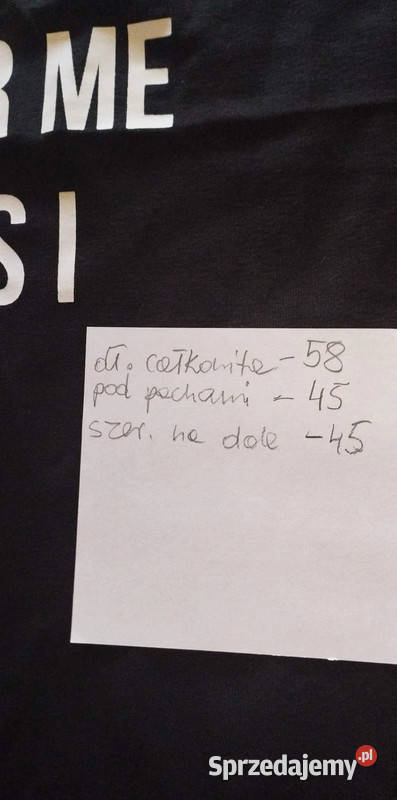 R ME
S I
dł. całkowita - 58
pod pachami - 45
szer. na dole - 45
Sprzedajemy.pl